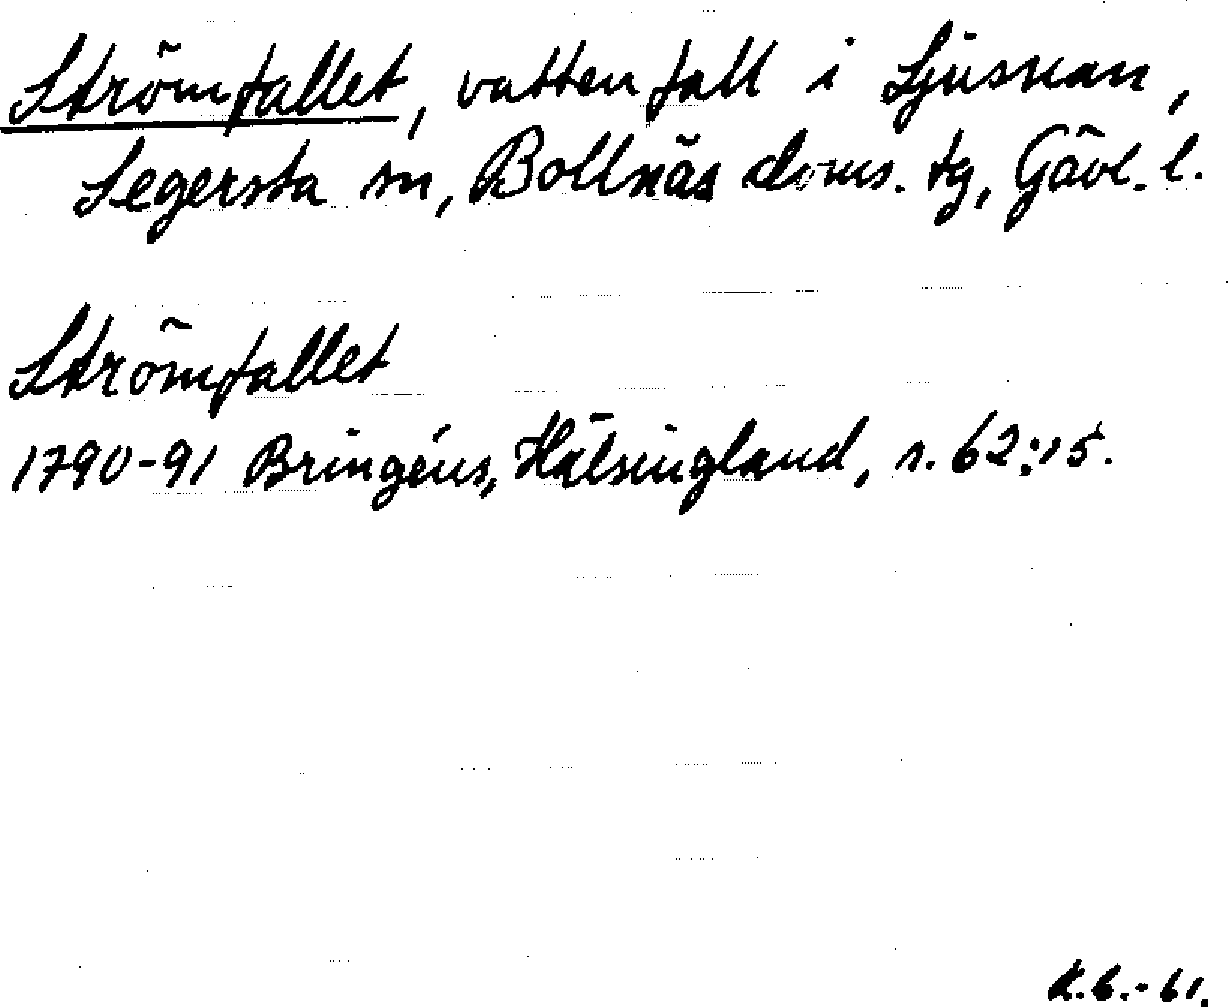 Strömfallet, vattenfall i Ljusnan,
Segersta sn, Bollnäs doms. tg, Gävl. l.
Strömfallet
1790-91 Bringéus, Hälsingland, s. 62:15.
K.B.-61.